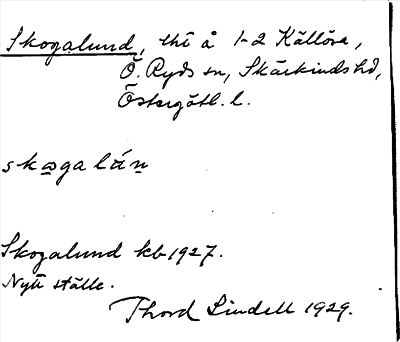 Skogalund, thi å 1-2 Källöra,
Ö. Ryds sn, Skärkinds hd,
Östergötl. l.
skogalún
Skogalund kb 1927.
Nytt ställe.
Thord Lindell 1929.